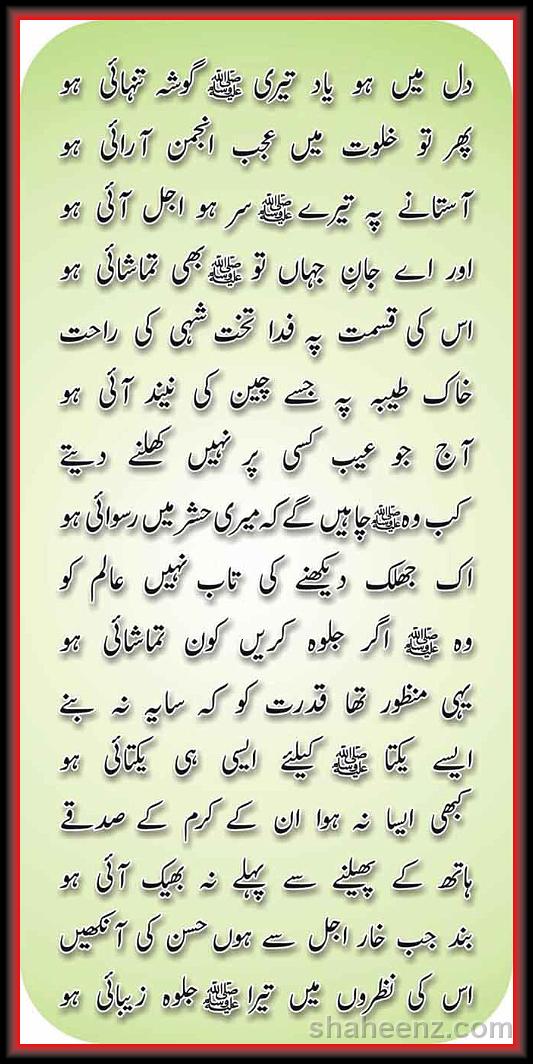 دل میں ہو یاد تیری ﷺ گوشہ تنہائی ہو
پھر تو خلوت میں عجب انجمن آرائی ہو
آستانے پہ تیرے ﷺ سر ہو اجل آئی ہو
اور اے جانِ جہاں تو ﷺ بھی تماشائی ہو
اس کی قسمت پہ فدا تخت شہی کی راحت
خاک طیبہ پہ جسے چین کی نیند آئی ہو
آج جو عیب کسی پر نہیں کھلنے دیتے
کب وہ ﷺ چاہیں گے کہ میری حشر میں رسوائی ہو
اک جھلک دیکھنے کی تاب نہیں عالم کو
وہ ﷺ اگر جلوہ کریں کون تماشائی ہو
یہی منظور تھا قدرت کو کہ سایہ نہ بنے
ایسے یکتا ﷺ کیلئے ایسی ہی یکتائی ہو
کبھی ایسا نہ ہوا ان کے کرم کے صدقے
ہاتھ کے پھیلنے سے پہلے نہ بھیک آئی ہو
بند جب خار اجل سے ہوں حسن کی آنکھیں
اس کی نظروں میں تیرا ﷺ جلوہ زیبائی ہو
shaheenz.com